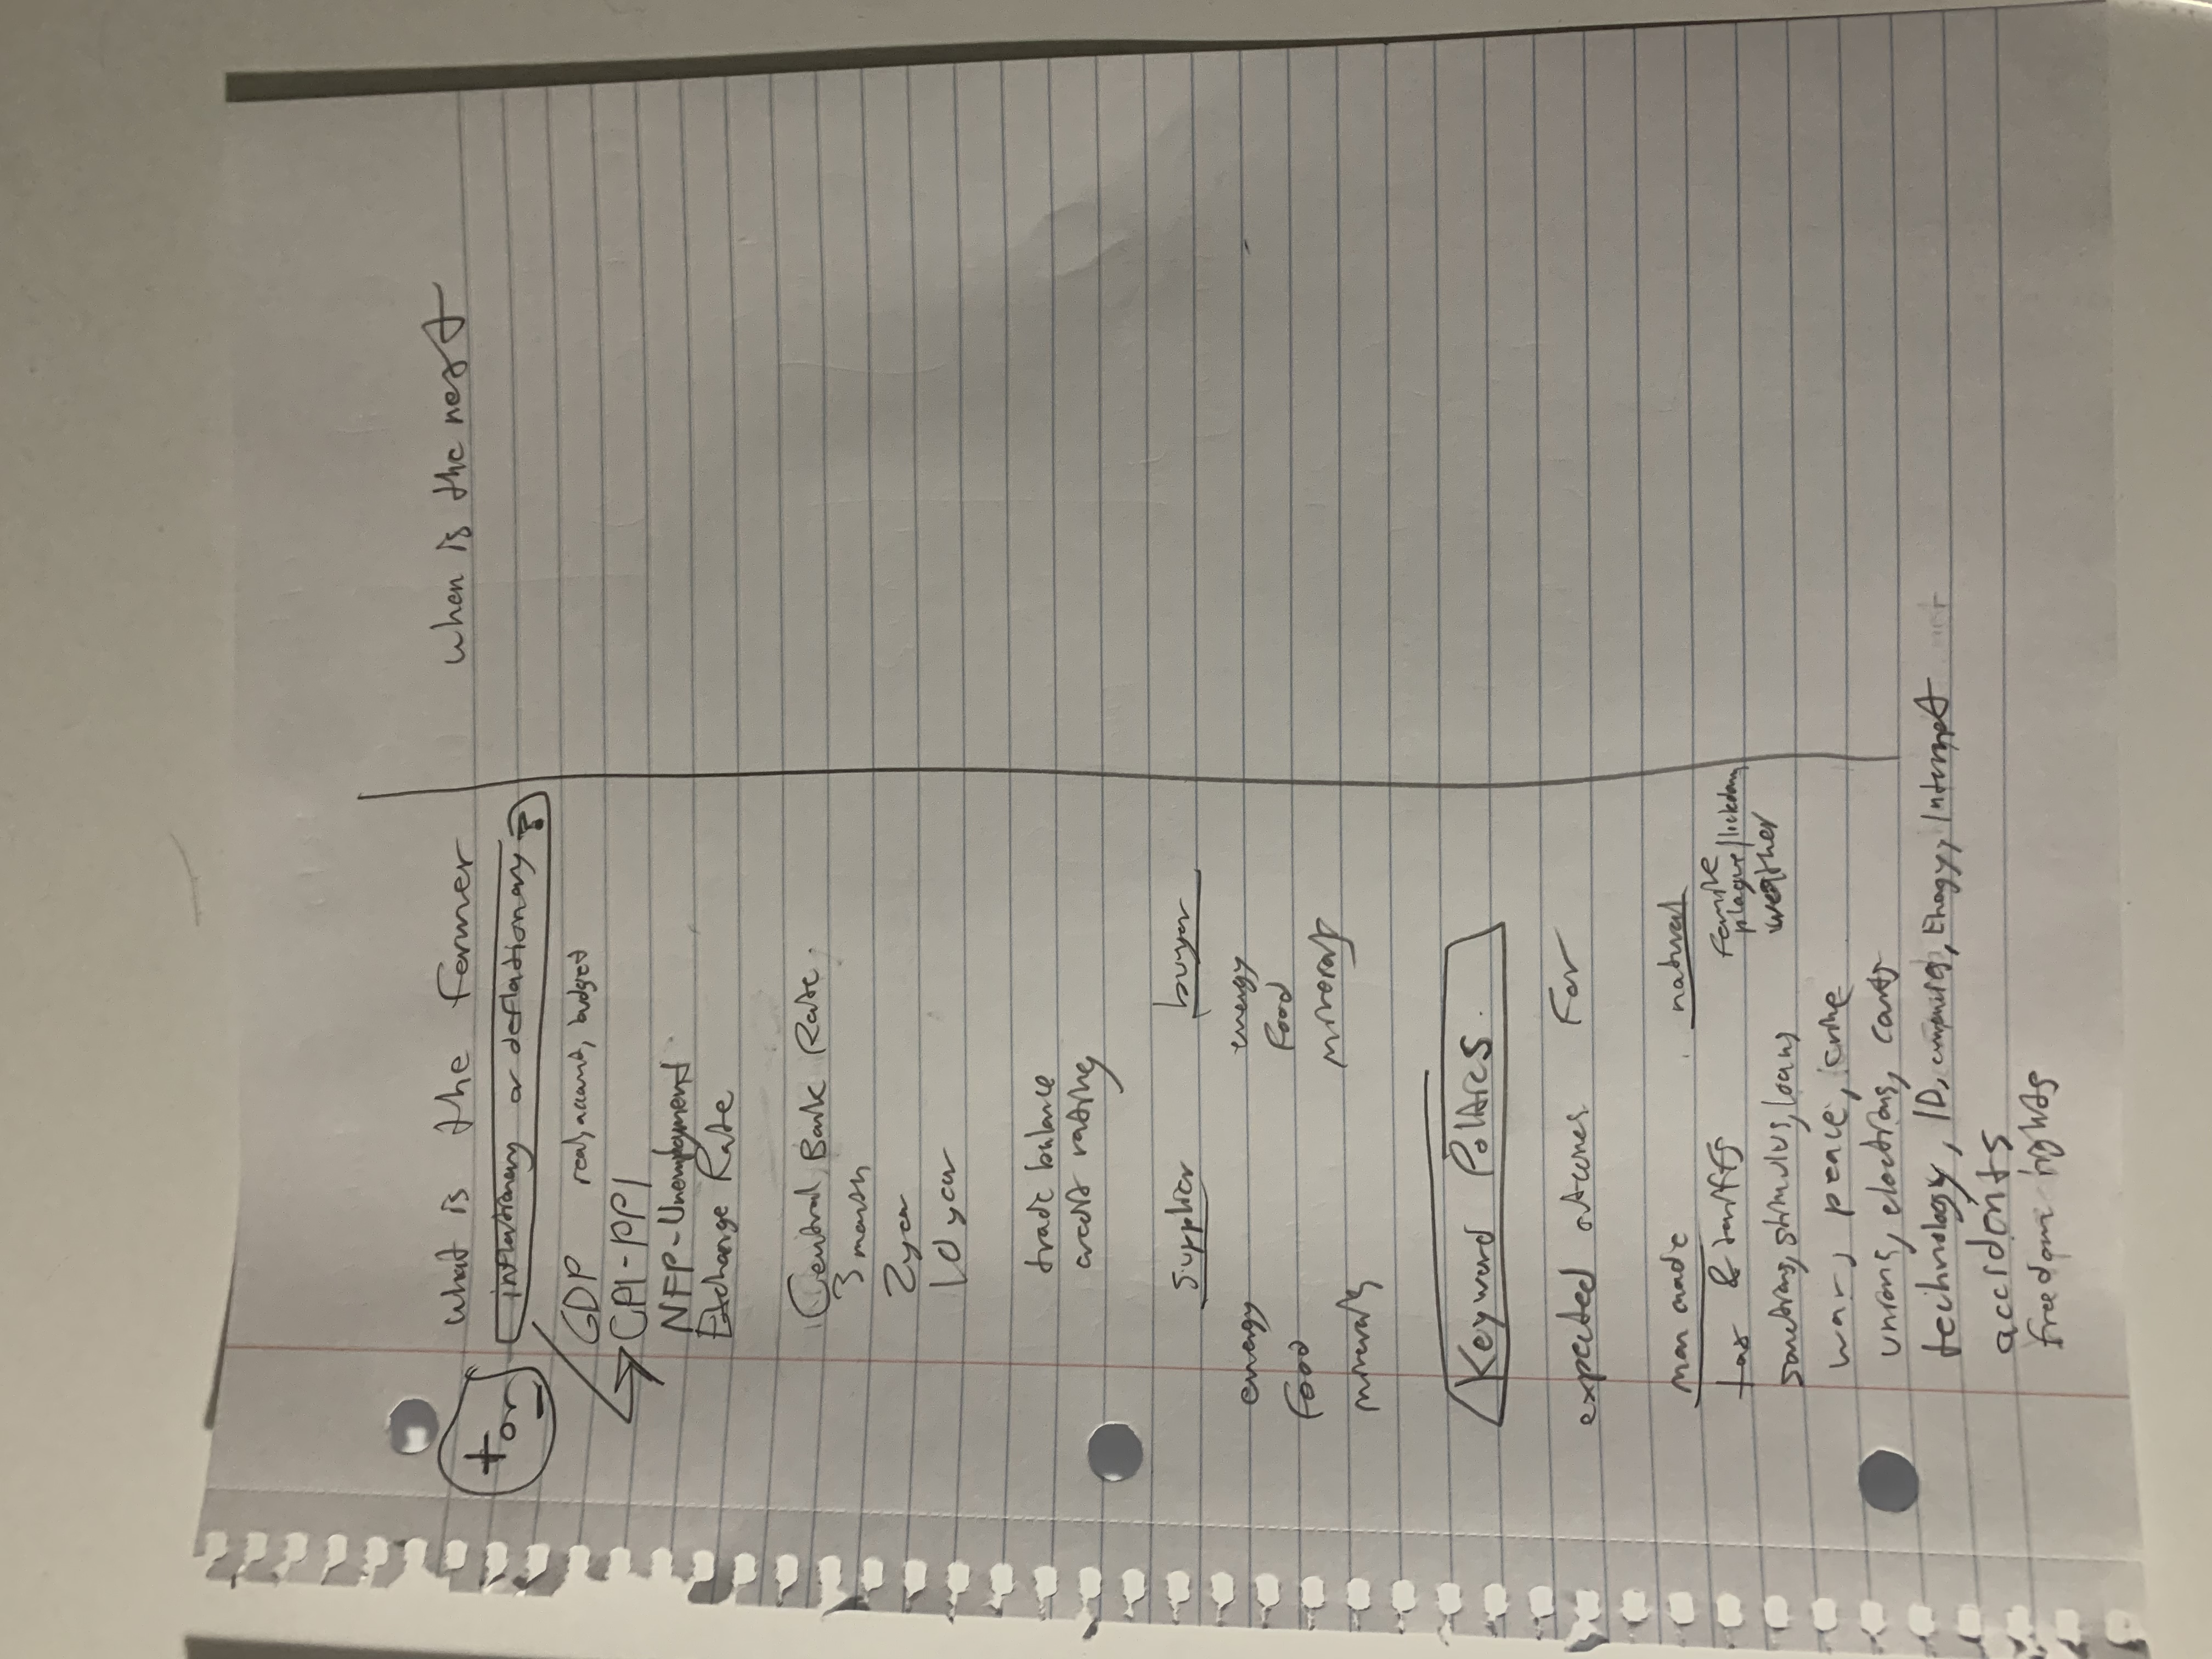 what is the former when is the next
+ or - inflationary or deflationary?
GDP real, account, budget
CPI - PPI
NFP - Unemployment
Exchange Rate
Central Bank Rate
3 month
2 year
10 year
trade balance
credit rating
supplier buyer
energy energy
food food
minerals minerals
Keyword Politics
expected outcomes for
man made natural
tax & tariffs famine
plague/lockdown
sanctions, stimulus, loans weather
war, peace, crime
unions, elections, courts
technology, ID, computing, Energy, Internet
accidents
freedom rights